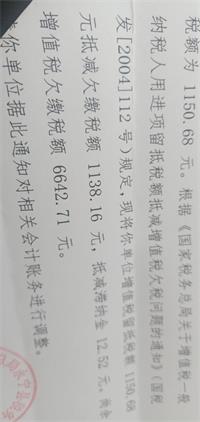 税额为 1150.68 元。根据《国家税务总局关于增值税一般
纳税人用进项留抵税额抵减增值税欠税问题的通知》（国税
发[2004]112号）规定，现将你单位增值税留抵税额 1150.68
元抵减欠缴税额 1138.16 元，抵减滞纳金 12.52 元。尚余
增值税欠缴税额 6642.71 元。
尔单位据此通知对相关会计账务进行调整。